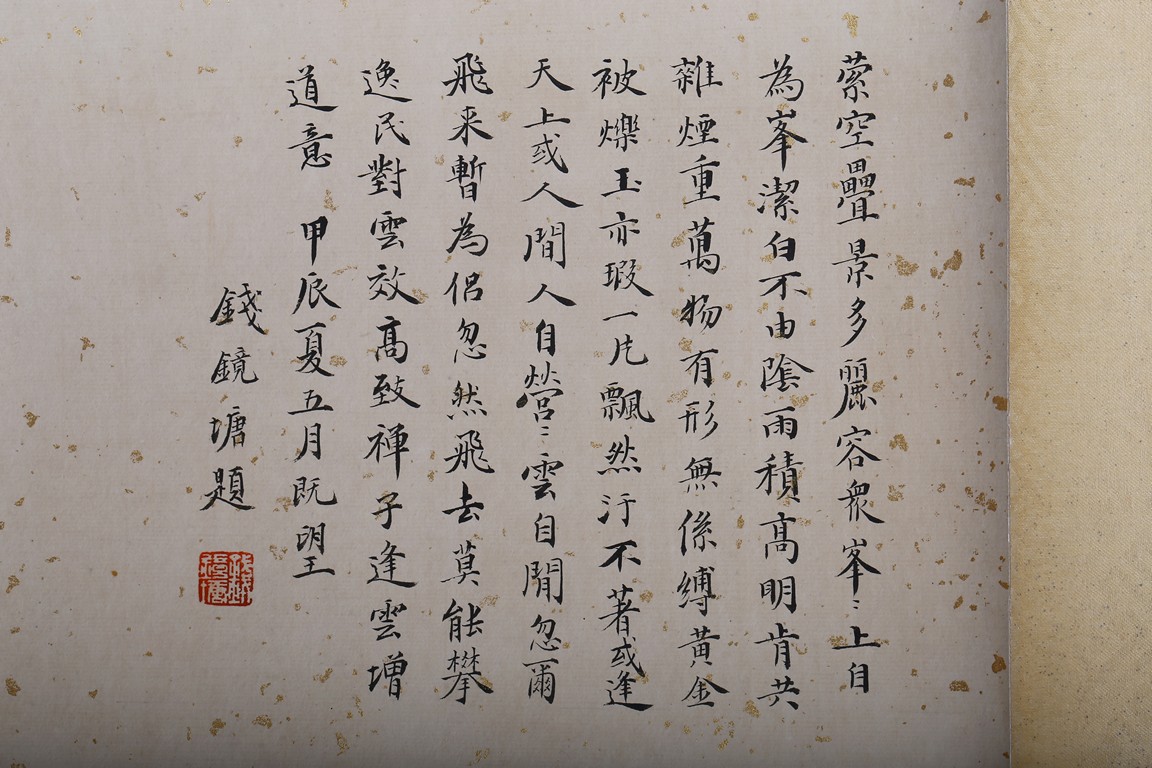 縈空疊景多麗容衆峯〻上自
為峯潔白不由陰雨積高明肯共
雜煙重萬物有形無係縛黃金
被爍玉亦瑕一片飄然汙不著或逢
天上或人間人自營〻雲自閒忽爾
飛来暫為侶忽然飛去莫能攀
逸民對雲效高致禅子逢雲增
道意 甲辰夏五月既朢
錢鏡塘題
錢鏡塘